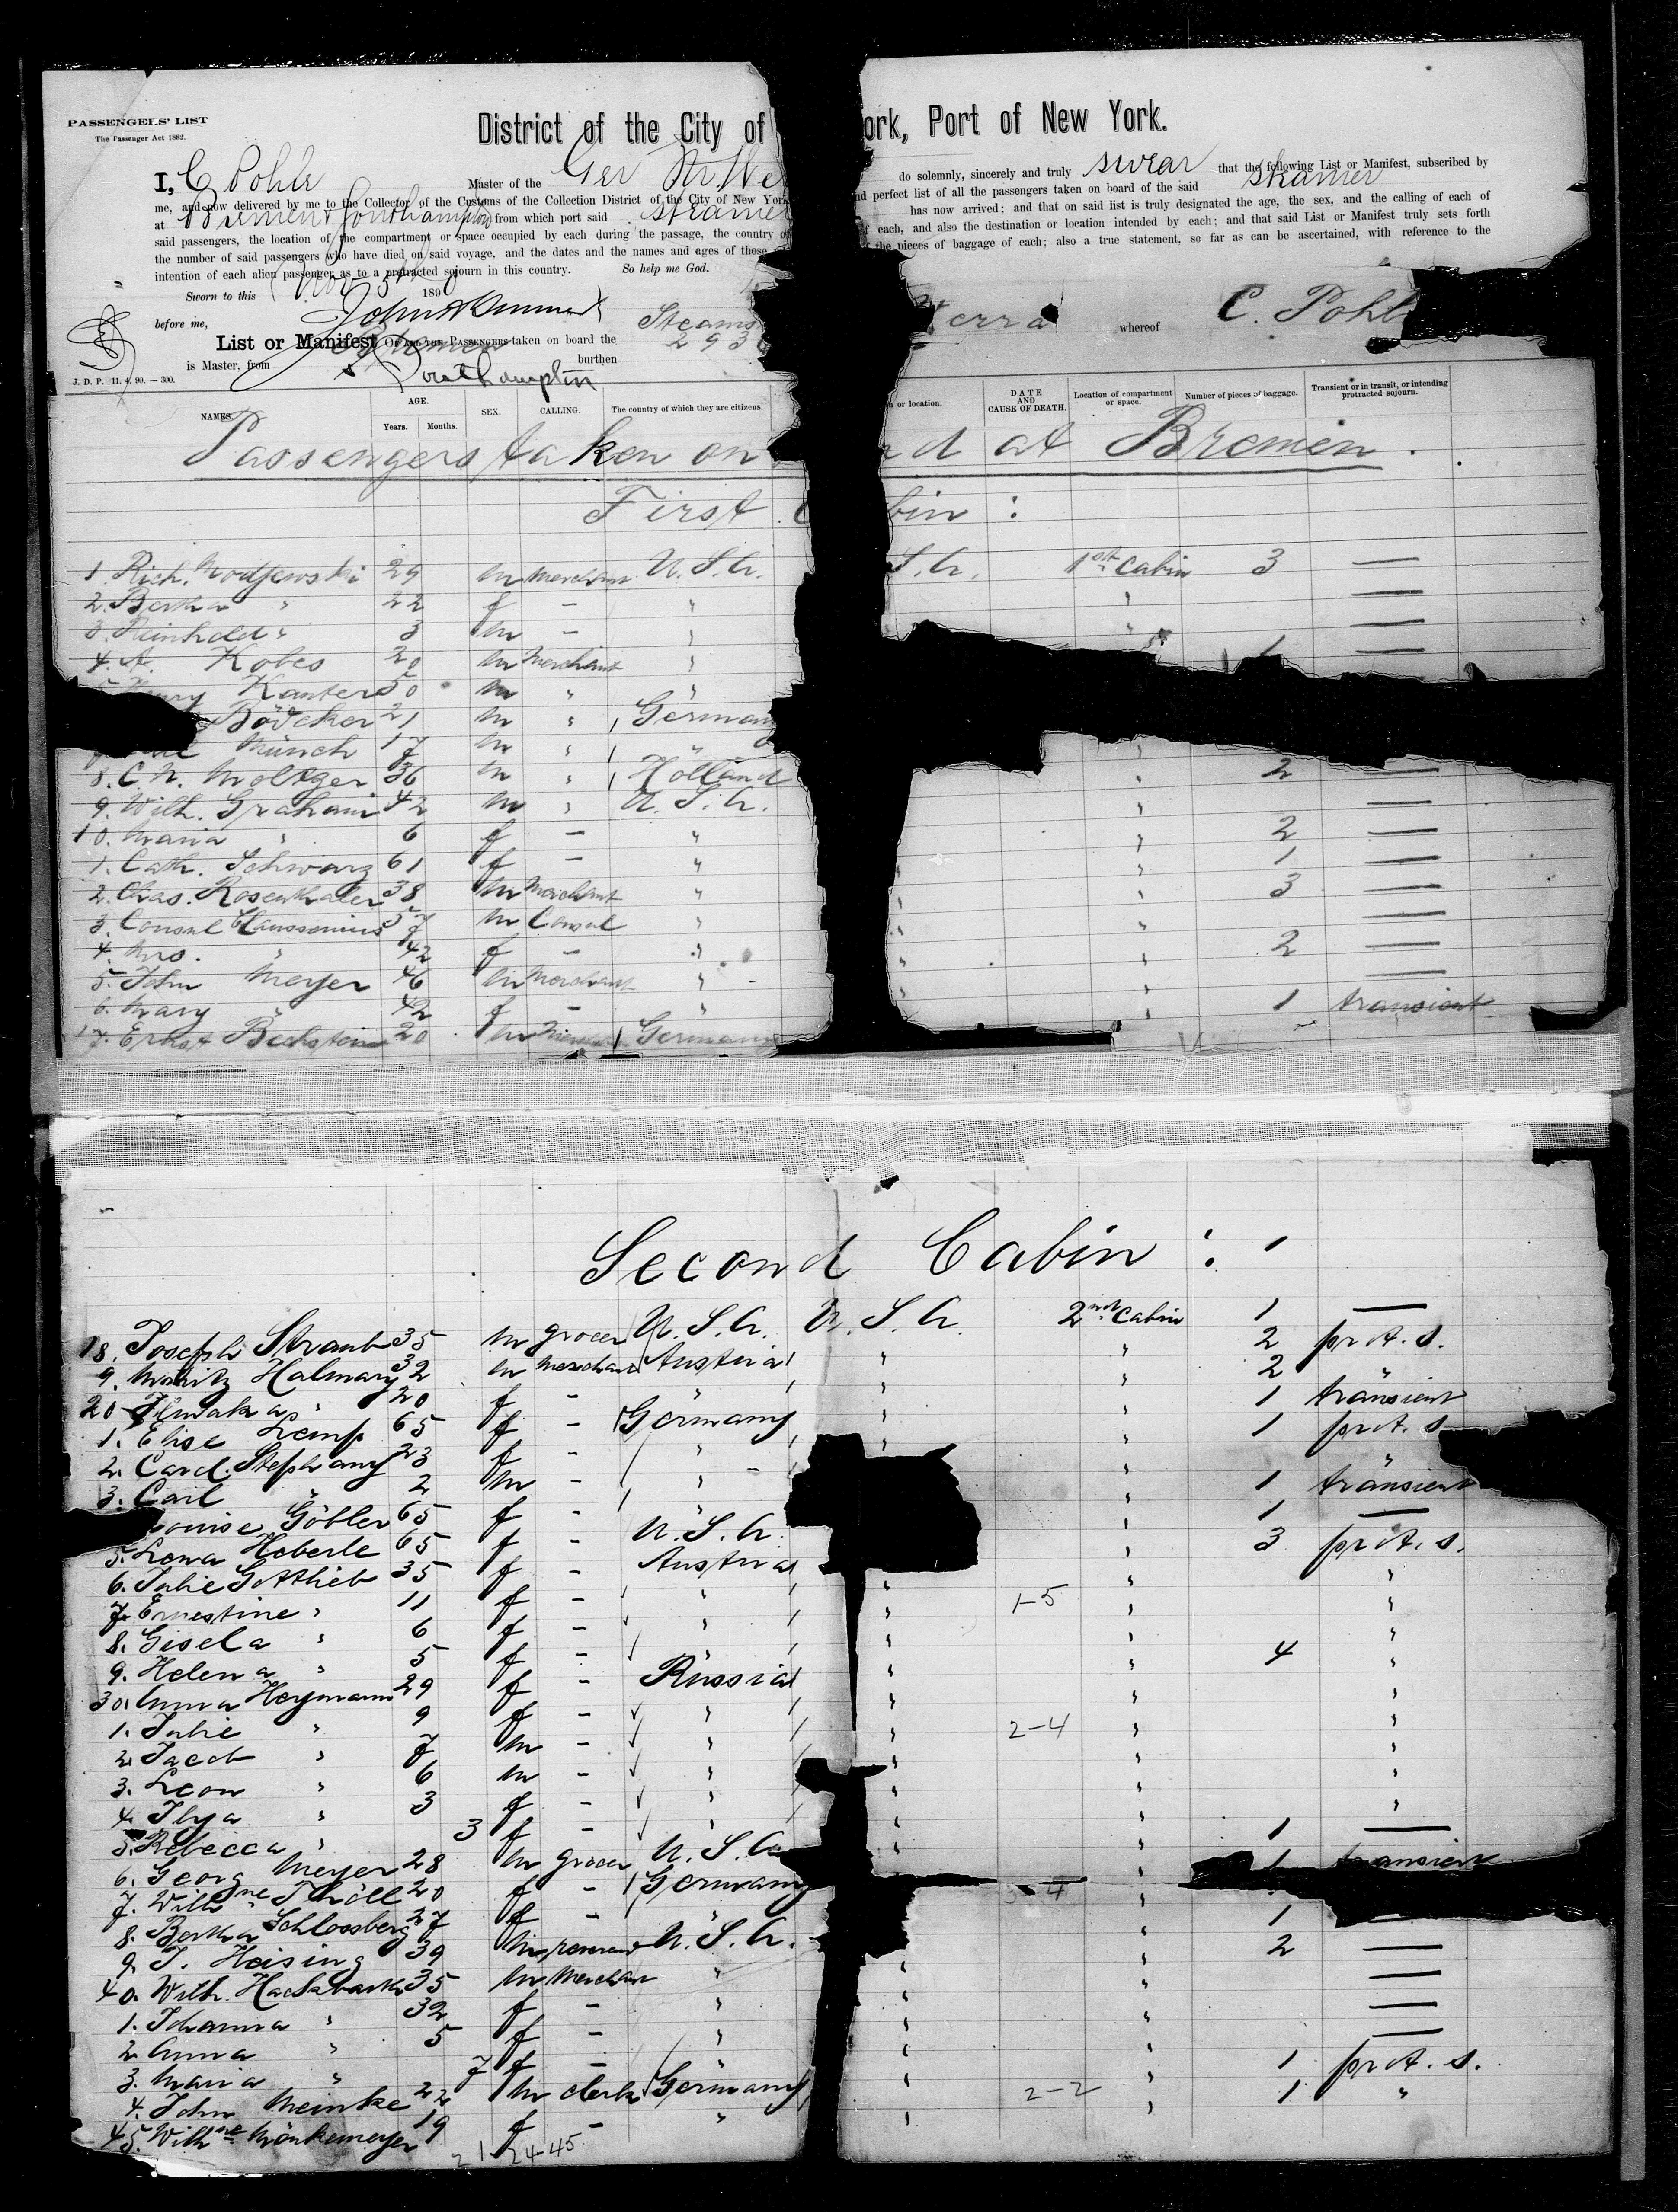 PASSENGERS' LIST
The Passenger Act 1882.
District of the City of ork, Port of New York.
I, C Pohle Master of the Ger Str. We do solemnly, sincerely and truly swear that the following List or Manifest, subscribed by
me, and now delivered by me to the Collector of the Customs of the Collection District of the City of New York nd perfect list of all the passengers taken on board of the said steamer
at Bremen & Southampton from which port said steamer has now arrived; and that on said list is truly designated the age, the sex, and the calling of each of
said passengers, the location of the compartment or space occupied by each during the passage, the country of f each, and also the destination or location intended by each; and that said List or Manifest truly sets forth
the number of said passengers who have died on said voyage, and the dates and the names and ages of those the pieces of baggage of each; also a true statement, so far as can be ascertained, with reference to the
intention of each alien passenger as to a protracted sojourn in this country. So help me God.
Sworn to this Nov 5th 1890
before me, John C. Pohl
List or Manifest OF ALL THE PASSENGERS taken on board the Steams erra whereof
is Master, from Bremen & Southampton burthen 293
J. D. P. 11. 4. 90. — 300.
NAMES. AGE. Years. Months. SEX. CALLING. The country of which they are citizens. n or location. DATE AND CAUSE OF DEATH. Location of compartment or space. Number of pieces of baggage. Transient or in transit, or intending protracted sojourn.
Passengers taken on rd at Bremen.
First C bin :
1 Rich. Modjewski 29 m merchant U.S.A. S.A. 1st Cabin 3 —
2. Bertha " 22 f - " " —
3. Reinhold " 3 m - " " —
4. A. Kobes 20 m Merchant " 1 —
Kanters 50 m " "
Bödeker 21 m " Germany
Münch 17 m "
8. C. N. Moltzer 36 m " Holland " 2 —
9. Wilh. Graham 42 m " U.S.A. " —
10. Maria " 6 f - " " 2 —
1. Cath. Schwarz 61 f - " " 1 —
2. Chas. Rosenthaler 38 m Merchant " " 3 —
3. Consul Claussenius 57 m Consul " " —
4. Mrs. " 42 f - " " 2 —
5. John Meyer 46 m Merchant " " —
6. Mary " 42 f - " " 1 transient
17. Ernst Bechstein 20 m Germany
Second Cabin : 1
18. Joseph Straub 35 m grocer U.S.A. U.S.A. 2nd Cabin 1 —
9. Moritz Halmary 32 m merchant Austria " " 2 prt. s.
20 " 20 f - " " 2 "
1. Elise Lemp 65 f - Germany " " 1 transient
2. Carol. Stephany 23 f - " " " 1 prt. s
3. Carl " 2 m - " " "
ouise Göbler 65 f - " " 1 transient
5. Lena Heberle 65 f - U.S.A. " 1 —
6. Julie Gottlieb 35 f - Austria " 3 prt. s.
7. Ernestine " 11 f - " " 1-5 " "
8. Gisela " 6 f - " " " "
9. Helena " 5 f - " " " "
30. Anna Heymann 29 f - Russia " " 4 "
1. Julie " 9 f - " " " "
2. Jacob " 7 m - " " 2-4 " "
3. Leon " 6 m - " " " "
4. Ilya " 3 f - " " " "
5. Rebecca " 3 f - " " " "
6. Georg Meyer 28 m grocer U.S.A " " 1 —
7. Wilhne Tholl 20 f - Germany " 1 transient
8. Bertha Schlossberg 27 f - " " 1
9. J. Heising 39 m reverend U.S.A. " " 2 —
40. Wilh. Hackbarth 35 m Merchant " " " —
1. Johanna " 32 f - " " " —
2. Anna " 5 f - " " " —
3. Maria " 7 f - " " "
4. John Meinke 22 m clerk Germany " 2-2 " 1 prt. s.
45. Wilhne Mönkemeyer 19 f - " " " 1 "
21-24-45